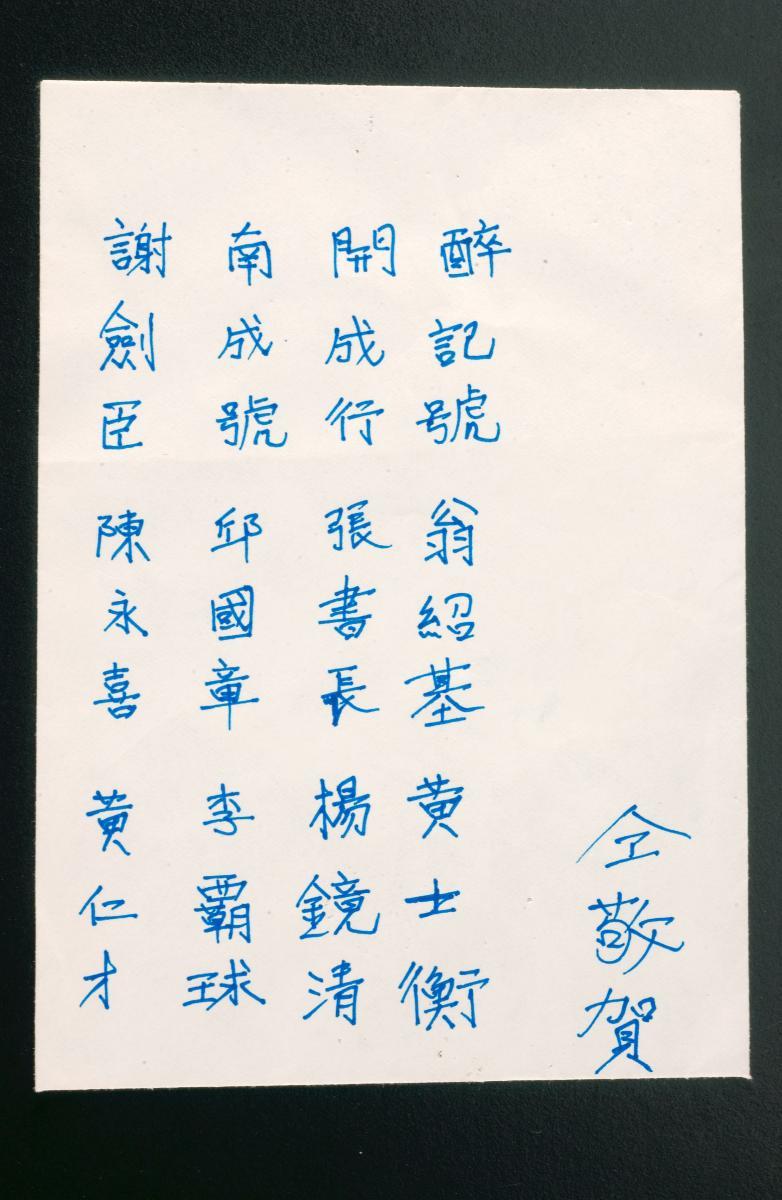 謝劍臣 陳永喜 黄仁才
南成號 邱國章 李霸球
開成行 張書長 楊鏡清
醉記號 翁紹基 黄士衡
仝敬賀